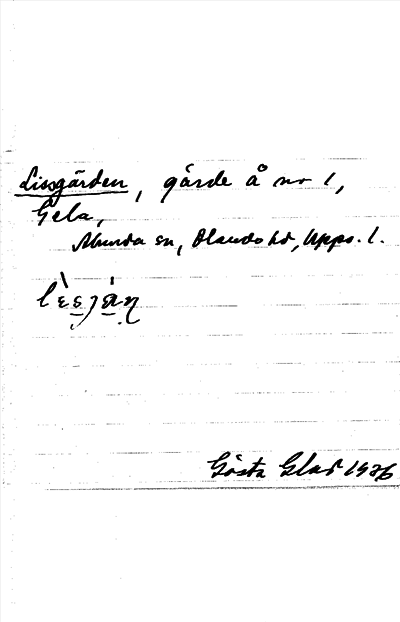 Lissgården, gärde å nr 1,
Gela,
Almunda sn, Olands hd, Upps. l.
Gösta Glad 1926